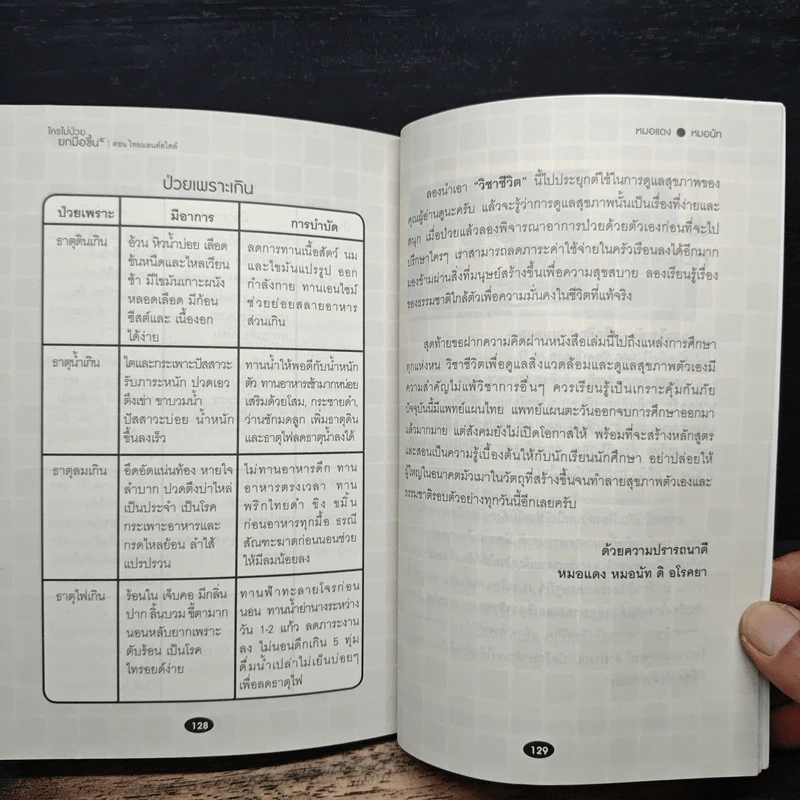 ใครไม่ป่วย
ยกมือขึ้น | ตอน ไทยแลนด์สไตล์
ป่วยเพราะเกิน
ป่วยเพราะ มีอาการ การบำบัด
ธาตุดินเกิน
อ้วน หิวน้ำบ่อย เลือด
ข้นหนืดและไหลเวียน
ช้า มีไขมันเกาะผนัง
หลอดเลือด มีก้อน
ซีสต์และ เนื้องอก
ได้ง่าย
ลดการทานเนื้อสัตว์ นม
และไขมันแปรรูป ออก
กำลังกาย ทานเอนไซม์
ช่วยย่อยสลายอาหาร
ส่วนเกิน
ธาตุน้ำเกิน
ไตและกระเพาะปัสสาวะ
รับภาระหนัก ปวดเอว
ตึงเข่า ขาบวมน้ำ
ปัสสาวะบ่อย น้ำหนัก
ขึ้นลงเร็ว
ทานน้ำให้พอดีกับน้ำหนัก
ตัว ทานอาหารเช้ามากหน่อย
เสริมด้วยโสม, กระชายดำ,
ว่านชักมดลูก เพิ่มธาตุดิน
และธาตุไฟลดธาตุน้ำลงได้
ธาตุลมเกิน
อึดอัดแน่นท้อง หายใจ
ลำบาก ปวดตึงบ่าไหล่
เป็นประจำ เป็นโรค
กระเพาะอาหารและ
กรดไหลย้อน ลำไส้
แปรปรวน
ไม่ทานอาหารดึก ทาน
อาหารตรงเวลา ทาน
พริกไทยดำ ขิง ขมิ้น
ก่อนอาหารทุกมื้อ ธรณี
สัณฑะฆาตก่อนนอนช่วย
ให้มีลมน้อยลง
ธาตุไฟเกิน
ร้อนใน เจ็บคอ มีกลิ่น
ปาก ลิ้นบวม ขี้ตามาก
นอนหลับยากเพราะ
ตับร้อน เป็นโรค
ไทรอยด์ง่าย
ทานฟ้าทะลายโจรก่อน
นอน ทานน้ำย่านางระหว่าง
วัน 1-2 แก้ว ลดภาระงาน
ลง ไม่นอนดึกเกิน 5 ทุ่ม
ดื่มน้ำเปล่าไม่เย็นบ่อยๆ
เพื่อลดธาตุไฟ
128
หมอแดง ● หมอนัท
ลองนำเอา "วิชาชีวิต" นี้ไปประยุกต์ใช้ในการดูแลสุขภาพของ
คุณผู้อ่านดูนะครับ แล้วจะรู้ว่าการดูแลสุขภาพนั้นเป็นเรื่องที่ง่ายและ
สนุก เมื่อป่วยแล้วลองพิจารณาอาการป่วยด้วยตัวเองก่อนที่จะไป
ปรึกษาใครๆ เราสามารถลดภาระค่าใช้จ่ายในครัวเรือนลงได้อีกมาก
มองข้ามผ่านสิ่งที่มนุษย์สร้างขึ้นเพื่อความสุขสบาย ลองเรียนรู้เรื่อง
ของธรรมชาติใกล้ตัวเพื่อความมั่นคงในชีวิตที่แท้จริง
สุดท้ายขอฝากความคิดผ่านหนังสือเล่มนี้ไปถึงแหล่งการศึกษา
ทุกแห่งหน วิชาชีวิตเพื่อดูแลสิ่งแวดล้อมและดูแลสุขภาพตัวเองมี
ความสำคัญไม่แพ้วิชาการอื่นๆ ควรเรียนรู้เป็นเกราะคุ้มกันภัย
ปัจจุบันนี้มีแพทย์แผนไทย แพทย์แผนตะวันออกจบการศึกษาออกมา
แล้วมากมาย แต่สังคมยังไม่เปิดโอกาสให้ พร้อมที่จะสร้างหลักสูตร
และสอนเป็นความรู้เบื้องต้นให้กับนักเรียนนักศึกษา อย่าปล่อยให้
ผู้ใหญ่ในอนาคตมัวเมาในวัตถุที่สร้างขึ้นจนทำลายสุขภาพตัวเองและ
ธรรมชาติรอบตัวอย่างทุกวันนี้อีกเลยครับ
ด้วยความปรารถนาดี
หมอแดง หมอนัท ดิ อโรคยา
129